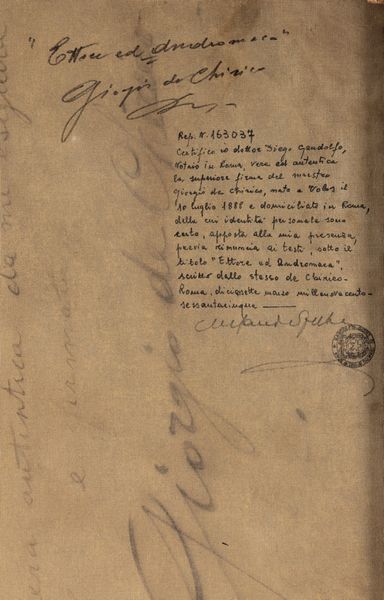 "Ettore ed Andromaca"
Giorgio de Chirico
Rep. N. 163037
Certifico io dottor Diego Gandolfo,
Notaio in Roma vera ed autentica
la superiore firma del maestro
Giorgio de Chirico, nato a Volos il
10 luglio 1888 e domiciliato in Roma,
della cui identità personale sono
certo, apposta alla mia presenza,
previa rinuncia ai testi, sotto il
titolo "Ettore ed Andromaca",
scritto dallo stesso de Chirico-
Roma, diciassette marzo millenovecento-
sessantacinque
vera autentica da me
e firma
Giorgio de